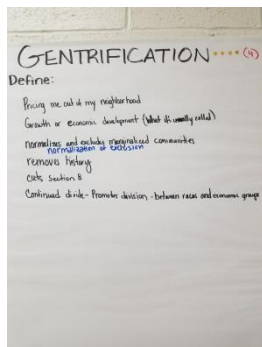 GENTRIFICATION .... (4)
Define:
Pricing me out of my neighborhood
Growth or economic development (What it's usually called)
normalizes and excludes marginalized communities
normalization of exclusion
removes history
cuts Section 8
Continued divide - Promotes division - between races and economic groups